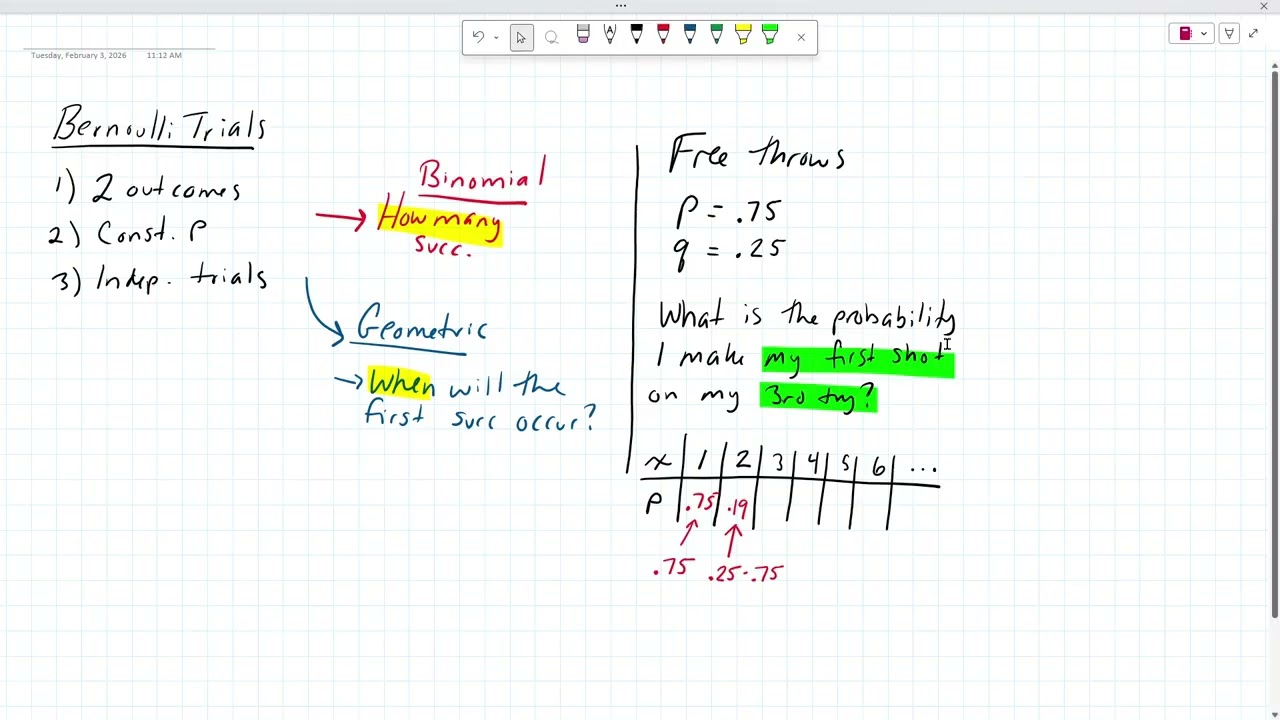 Tuesday, February 3, 2026 11:12 AM
Bernoulli Trials
1) 2 outcomes
2) Const. P
3) Indep. trials
Binomial
→ How many
succ.
Geometric
→ When will the
first succ occur?
Free throws
P = .75
q = .25
What is the probability
I make my first shot
on my 3rd try?
x 1 2 3 4 5 6 ...
P .75 .19
.75 .25·.75